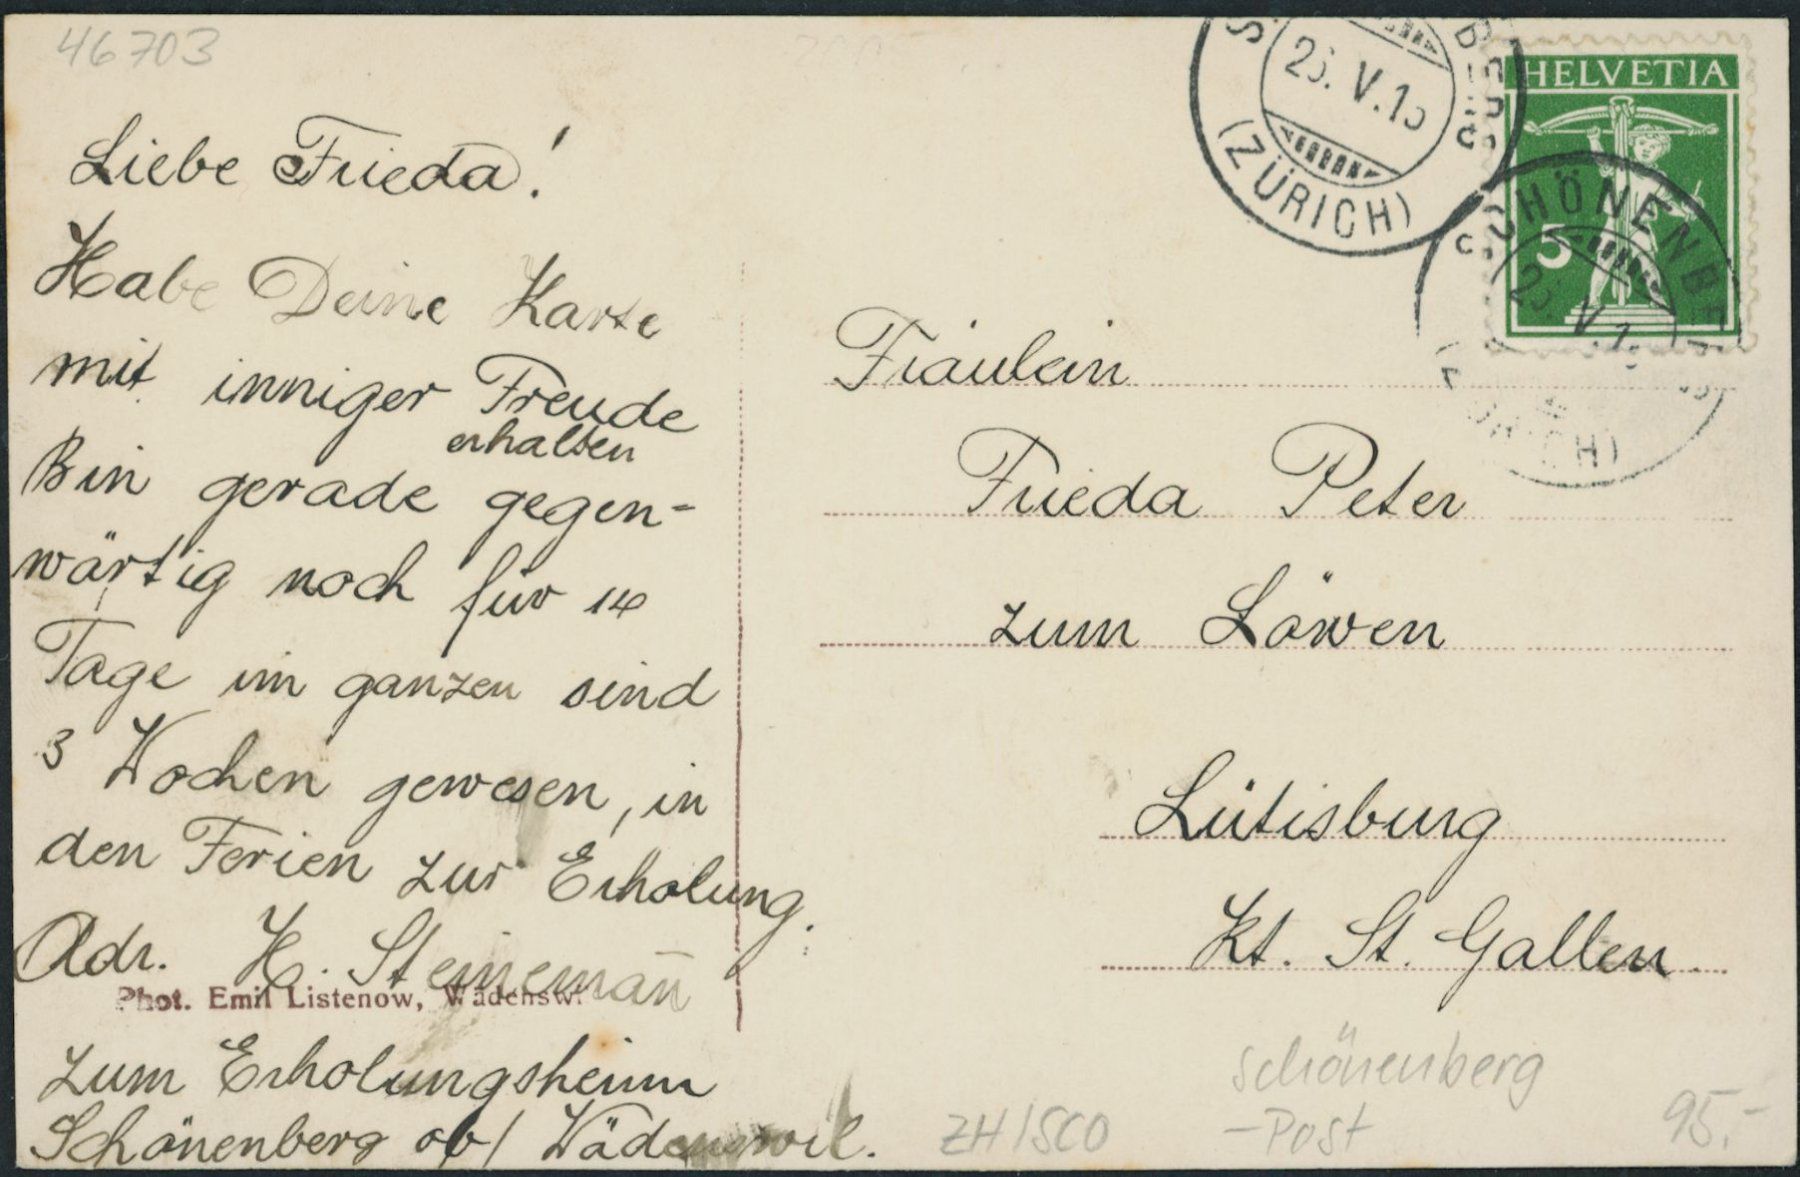 46703
Liebe Frieda!
Habe Deine Karte
mit inniger Freude
erhalten
Bin gerade gegen-
wärtig noch für 14
Tage im ganzen sind
3 Wochen gewesen, in
den Ferien zur Erholung.
Adr. H. Steinemañ
Phot. Emil Listenow, Wädenswil
zum Erholungsheim
Schönenberg ob/ Wädenswil.
(ZÜRICH)
HELVETIA
5
SCHÖNENBERG
(ZÜRICH)
Fräulein
Frieda Peter
zum Löwen
Lütisburg
Kt. St. Gallen.
Schönenberg
-Post
ZH/SCO
95.-